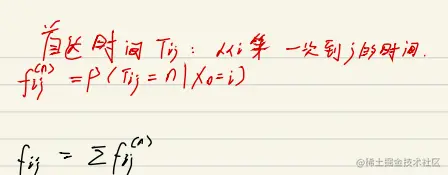 首达时间 Tij: 从i第一次到j的时间.
fij^(n) = P(Tij = n | X0 = i)
fij = Σ fij^(n)
@稀土掘金技术社区